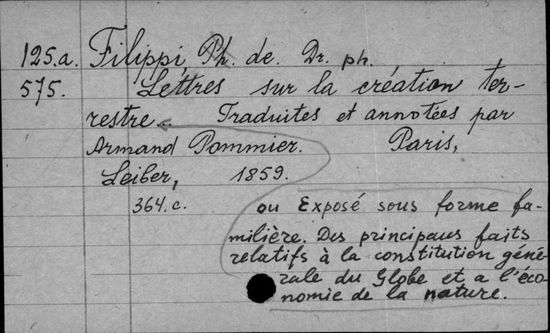 125.a. Filippi, Ph. de. Dr. ph.
575. Lettres sur la création ter-
restre Traduites et annotées par
Armand Pommier. Paris,
Leiber, 1859.
364.c. ou Exposé sous forme fa-
milière. Des principaux faits
relatifs à la constitution géné-
rale du Globe et a l'éco-
nomie de la nature.